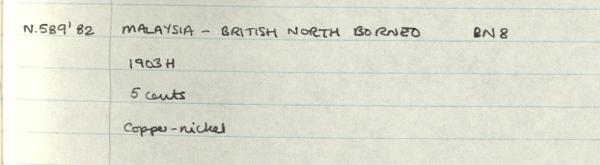 N.589'82 MALAYSIA – BRITISH NORTH BORNEO BN8
1903H
5 cents
Copper-nickel